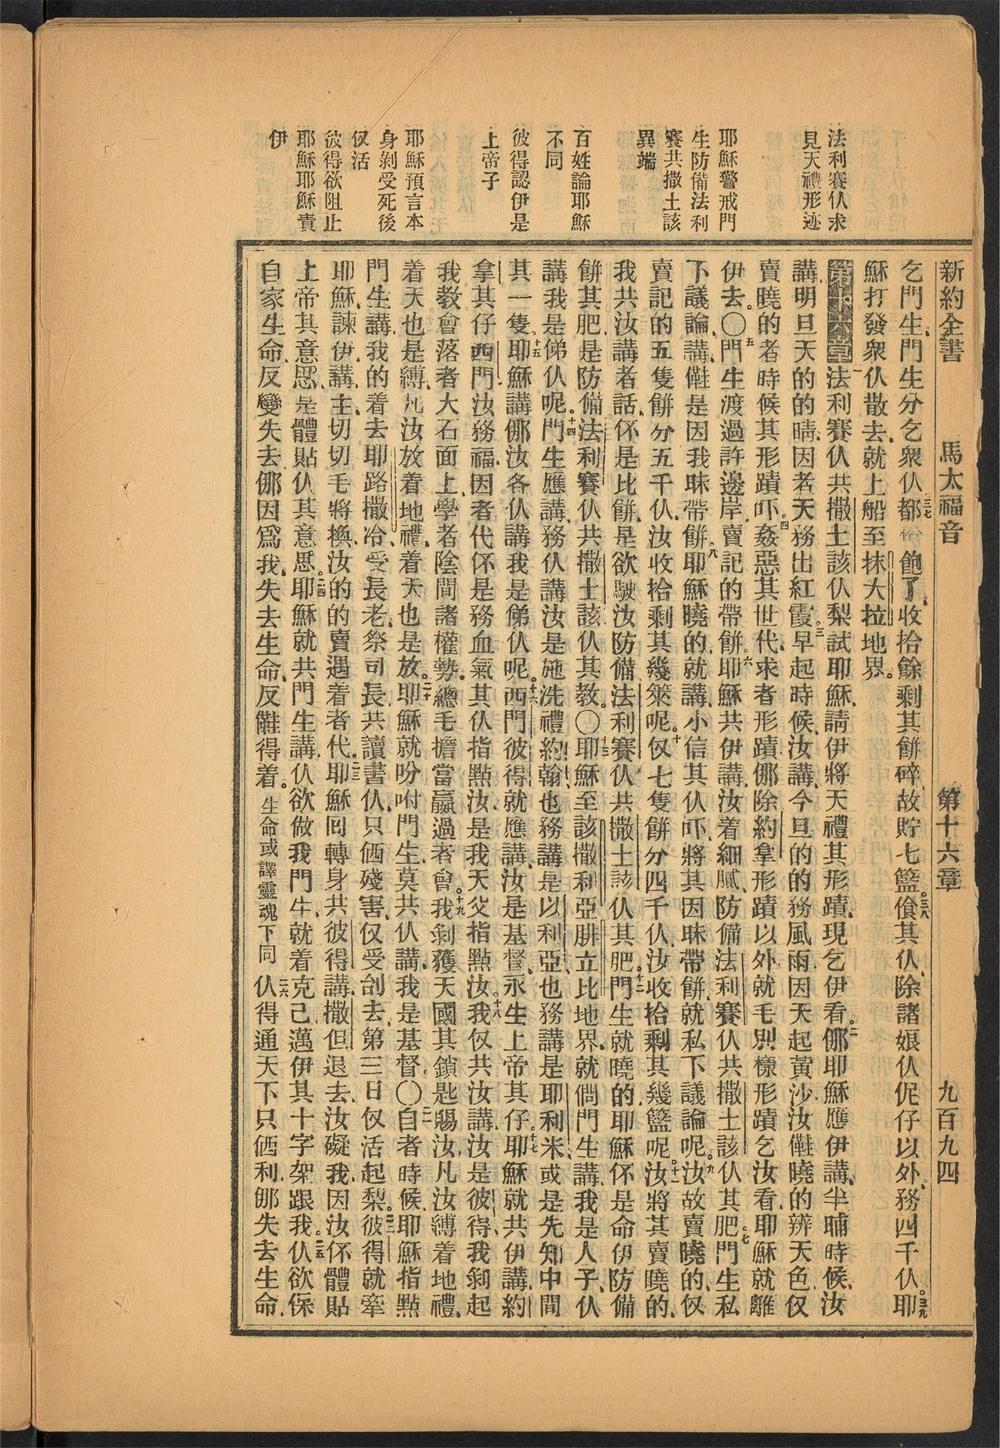 新約全書 馬太福音 第十六章 九百九四
法利賽伙求
見天禮形迹
耶穌警戒門
生防備法利
賽共撒土該
異端
百姓論耶穌
不同
彼得認伊是
上帝子
耶穌預言本
身剝受死後
伩活
彼得欲阻止
耶穌耶穌責
伊
乞門生門生分乞衆伙都飽了收拾餘剩其餅碎故貯七籃三八飧其伙除諸娘伙伲仔以外務四千伙三九耶
穌打發衆伙散去就上船至抹大拉地界
第十六章一法利賽伙共撒土該伙梨試耶穌請伊將天禮其形蹟現乞伊看二㑚耶穌應伊講半晡時候汝
講明旦天的的晴因若天務出紅霞三早起時候汝講今旦的的務風雨因天起黃沙汝僅曉的辨天色伩
賣曉的者時候其形蹟吓四姦惡其世代求者形蹟㑚除約拿形蹟以外就毛別樣形蹟乞汝看耶穌就離
伊去〇五門生渡過許邊岸賣記的帶餅六耶穌共伊講汝着細膩防備法利賽伙共撒土該伙其肥七門生私
下議論講僅是因我昧帶餅八耶穌曉的就講小信其伙吓將其因昧帶餅就私下議論呢九汝故賣曉的伩
賣記的五隻餅分五千伙汝收拾剩其幾筞呢十伩七隻餅分四千伙汝收拾剩其幾籃呢十一汝將其賣曉的
我共汝講者話伓是比餅是欲駛汝防備法利賽伙共撒土該伙其肥十二門生就曉的耶穌伓是命伊防備
餅其肥是防備法利賽伙共撒土該伙其教〇耶穌至該撒利亞腓立比地界就問門生講我是人子伙
講我是俤伙呢十四門生應講務伙講汝是施洗禮約翰也務講是以利亞也務講是耶利米或是先知中間
其一隻十五耶穌講㑚汝各伙講我是俤伙呢十六西門彼得就應講汝是基督永生上帝其仔十七耶穌就共伊講約
拿其仔西門汝務福因者代伓是務血氣其伙指點汝是我天父指點汝十八我伩共汝講汝是彼得我剝起
我教會落者大石面上學者陰間諸權勢總毛擔當贏過者會十九我剝獲天國其鎖匙賜汝凡汝縛着地禮
着天也是縛凡汝放着地禮着天也是放二十耶穌就吩咐門生莫共伙講我是基督〇二一自者時候耶穌指點
門生講我的着去耶路撒冷受長老祭司長共讀書伙只㑚殘害伩受刣去第三日伩活起梨二二彼得就牽
耶穌諫伊講主切切毛將換汝的的賣遇着者代二三耶穌回轉身共彼得講撒但退去汝礙我因汝伓體貼
上帝其意思是體貼伙其意思二四耶穌就共門生講伙欲做我門生就着克己邁伊其十字架跟我二五伙欲保
自家生命反變失去㑚因爲我失去生命反僅得着生命或譯靈魂下同二六伙得通天下只㑚利㑚失去生命